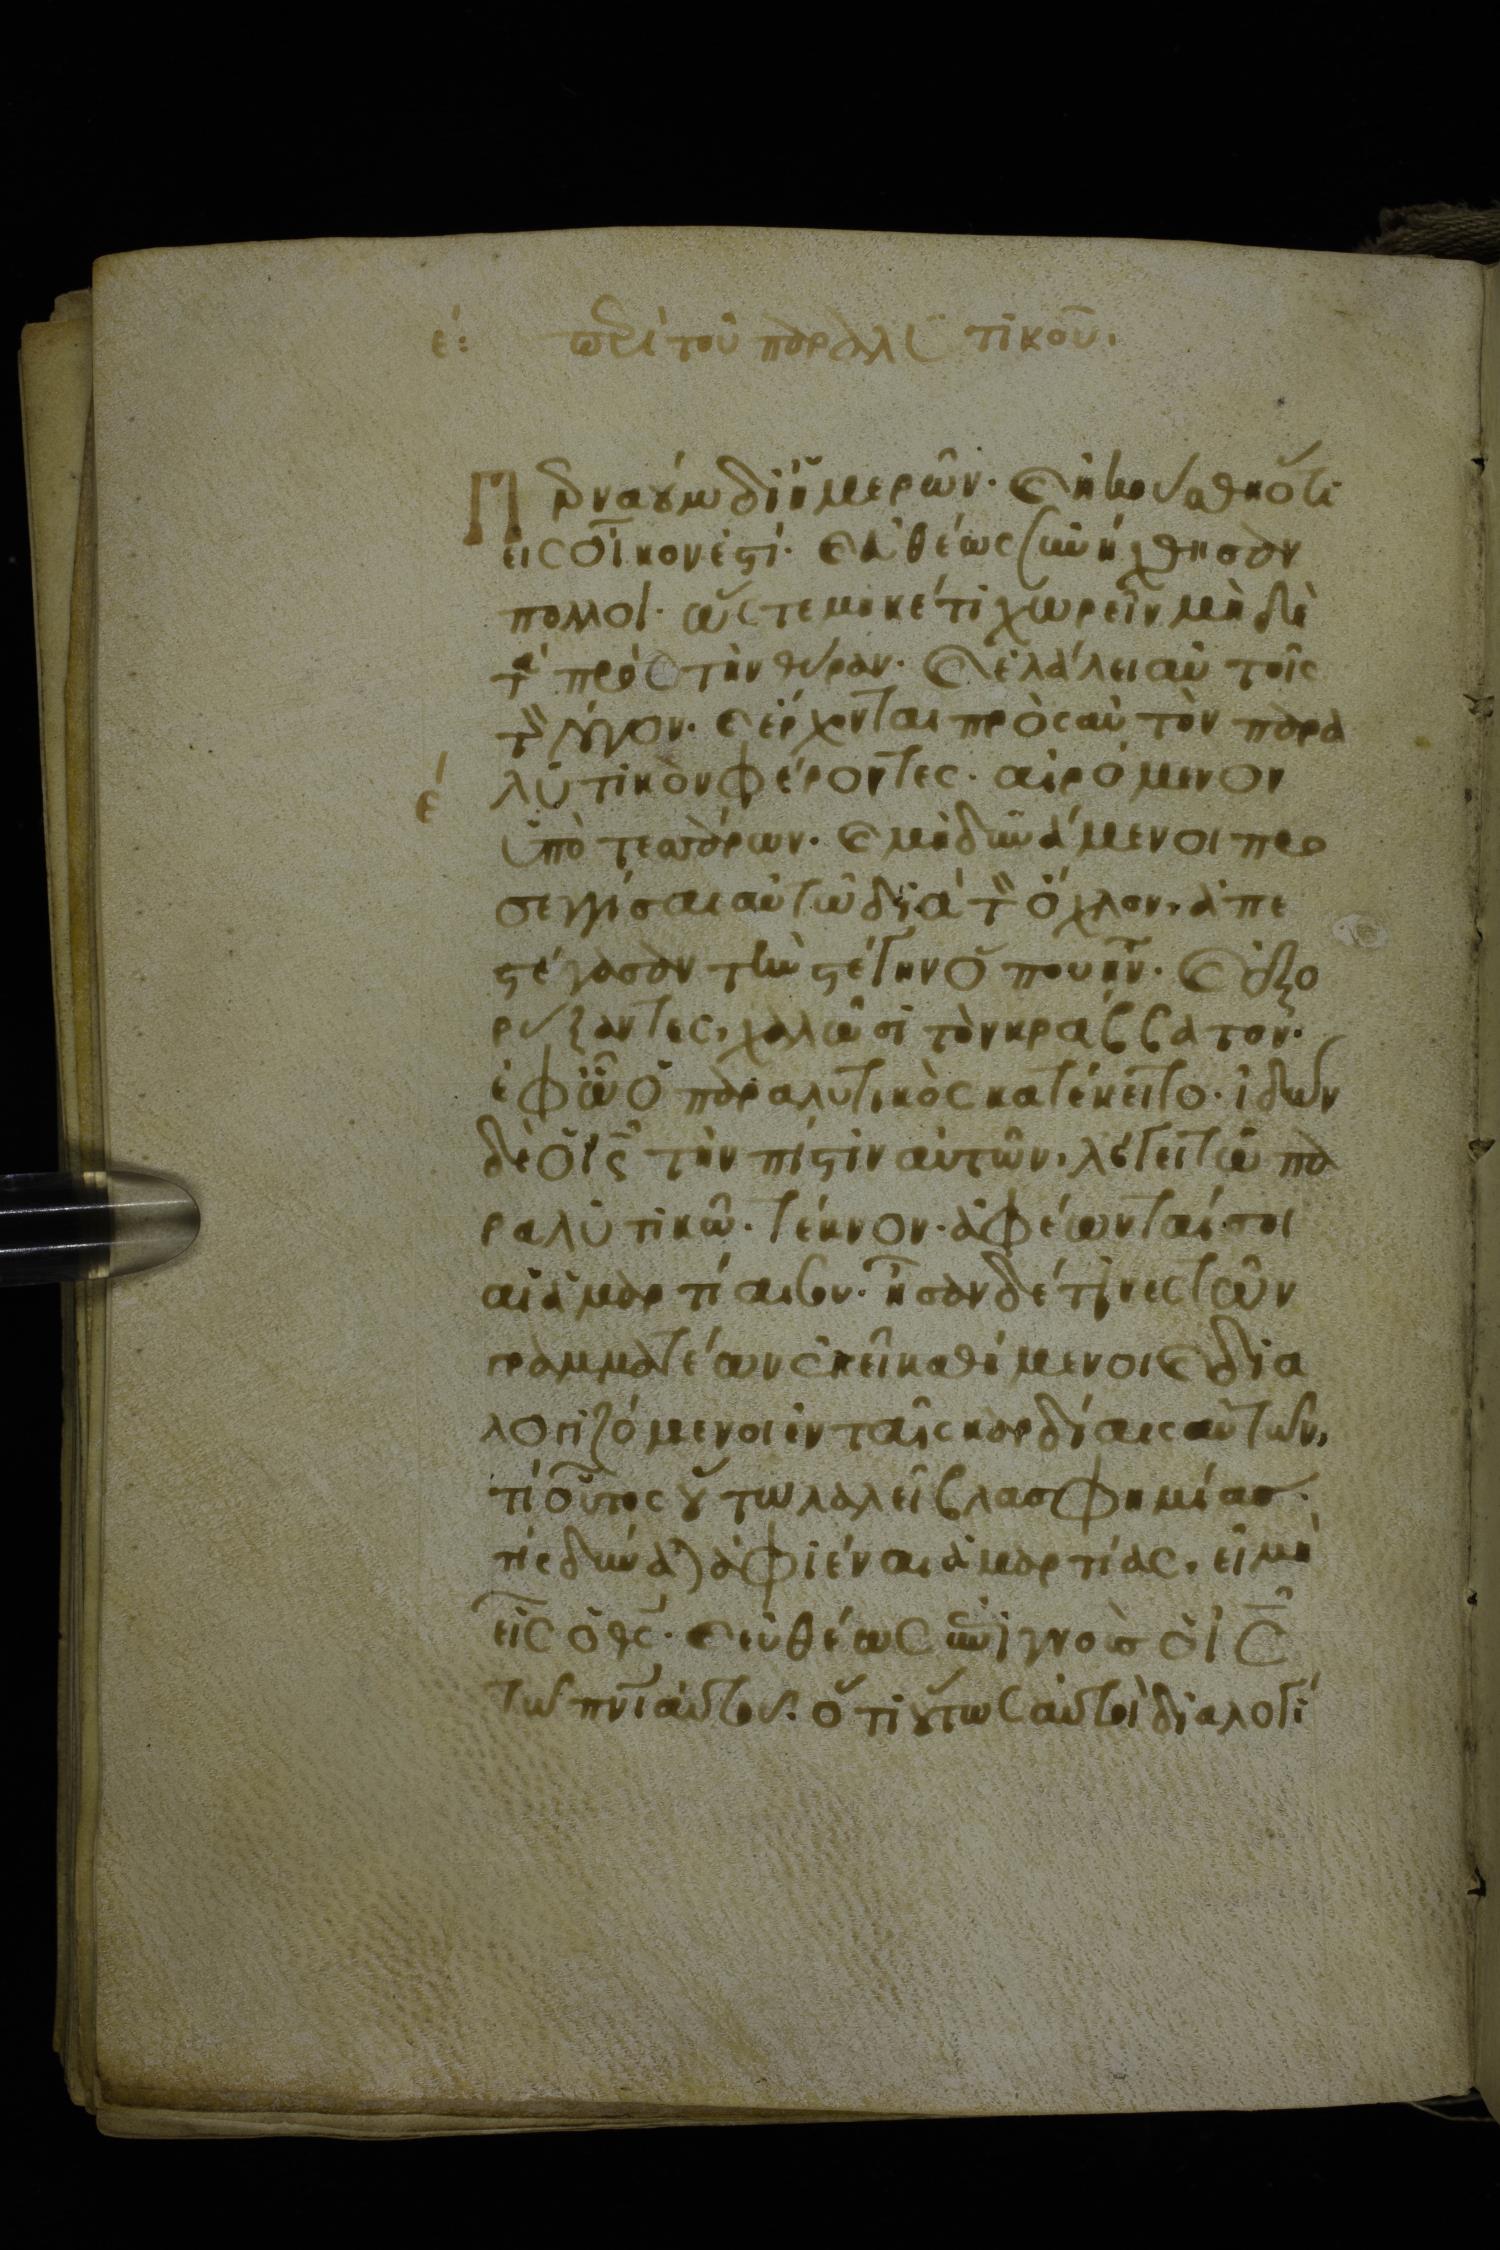 ε΄: περὶ τοῦ παραλυτικοῦ.
Πάλιν ἀγίω δι ἡμερῶν. καὶ ἠκούσθη ὅτι
εἰς οἶκον ἐστί. καὶ εὐθέως συνήχθησαν
πολλοί. ὥστε μηκέτι χωρεῖν μὴ δὲ
τὰ πρὸς τὴν θύραν. καὶ ἐλάλει αὐτοῖς
τὸν λόγον. καὶ ἔρχονται πρὸς αὐτὸν παρα
ε΄ λυτικὸν φέροντες. αἰρόμενον
ὑπὸ τεσσάρων. καὶ μὴ δυνάμενοι προ
σεγγίσαι αὐτῶ διὰ τὸν ὄχλον, ἀπε
στέγασαν τὴν στέγην ὅπου ἦν. καὶ ἐξο
ρύξαντες, χαλῶσι τὸν κράββατον.
ἐφ ᾧ ὁ παραλυτικὸς κατέκειτο. ἰδὼν
δὲ ὁ ις τὴν πίστιν αὐτῶν, λέγει τῶ πα
ραλυτικῶ. τέκνον. ἀφέωνταί σοι
αἱ ἁμαρτίαι σου. ἦσαν δέ τινες τῶν
γραμματέων ἐκεῖ καθήμενοι καὶ δια
λογιζόμενοι ἐν ταῖς καρδίαις αὐτῶν,
τί οὗτος οὕτω λαλεῖ βλασφημίας.
τίς δύναται ἀφιέναι ἁμαρτίας, εἰ μὴ
εἷς ὁ θς. καὶ εὐθέως ἐπιγνοὺς ὁ ις
τῶ πνι αὐτοῦ. ὅτι οὕτως αὐτοὶ διαλογί